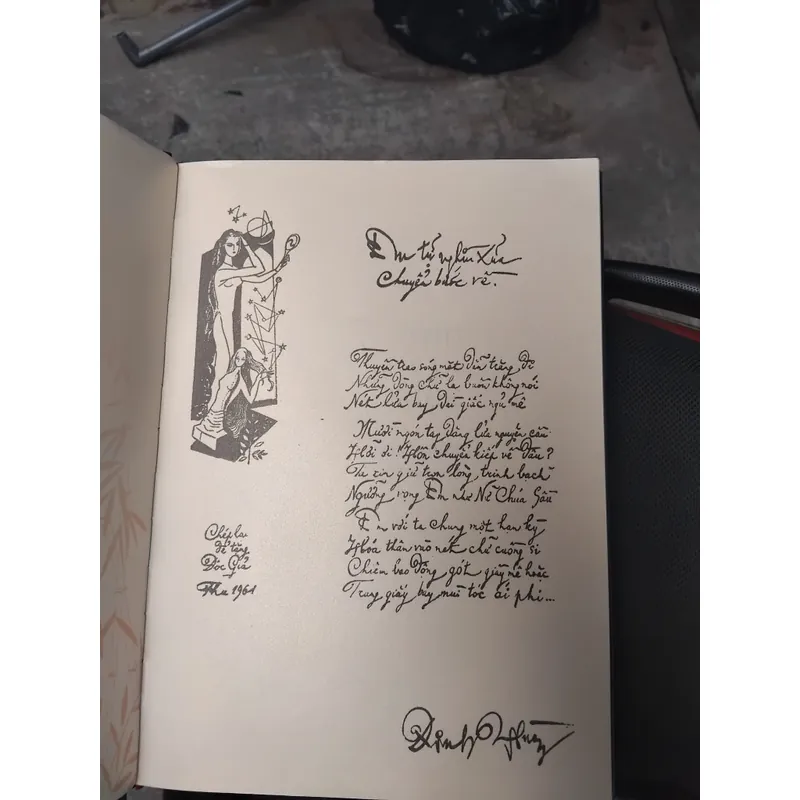 Em từ nghìn xưa
chuyển bước về.
Thuyền trao sóng mắt dẫn trăng đi
Những dòng chữ lạ buồn không nói
Nét lửa bay dài giấc ngủ mê
Mười ngón tay dâng lửa nguyện cầu
Hỡi ơi! Hồn chuyển kiếp về đâu?
Ta xin giữ trọn lòng trinh bạch
Ngưỡng vọng Em như Nữ Chúa Sầu
Em với ta chung một hạn kỳ
Hóa thân vào nét chữ cuồng si
Chiêm bao động gót giầy mê hoặc
Trang giấy bay mùi tóc ái phi...
Chép lại
để tặng
Độc Giả
Thu 1961
Đinh Hùng